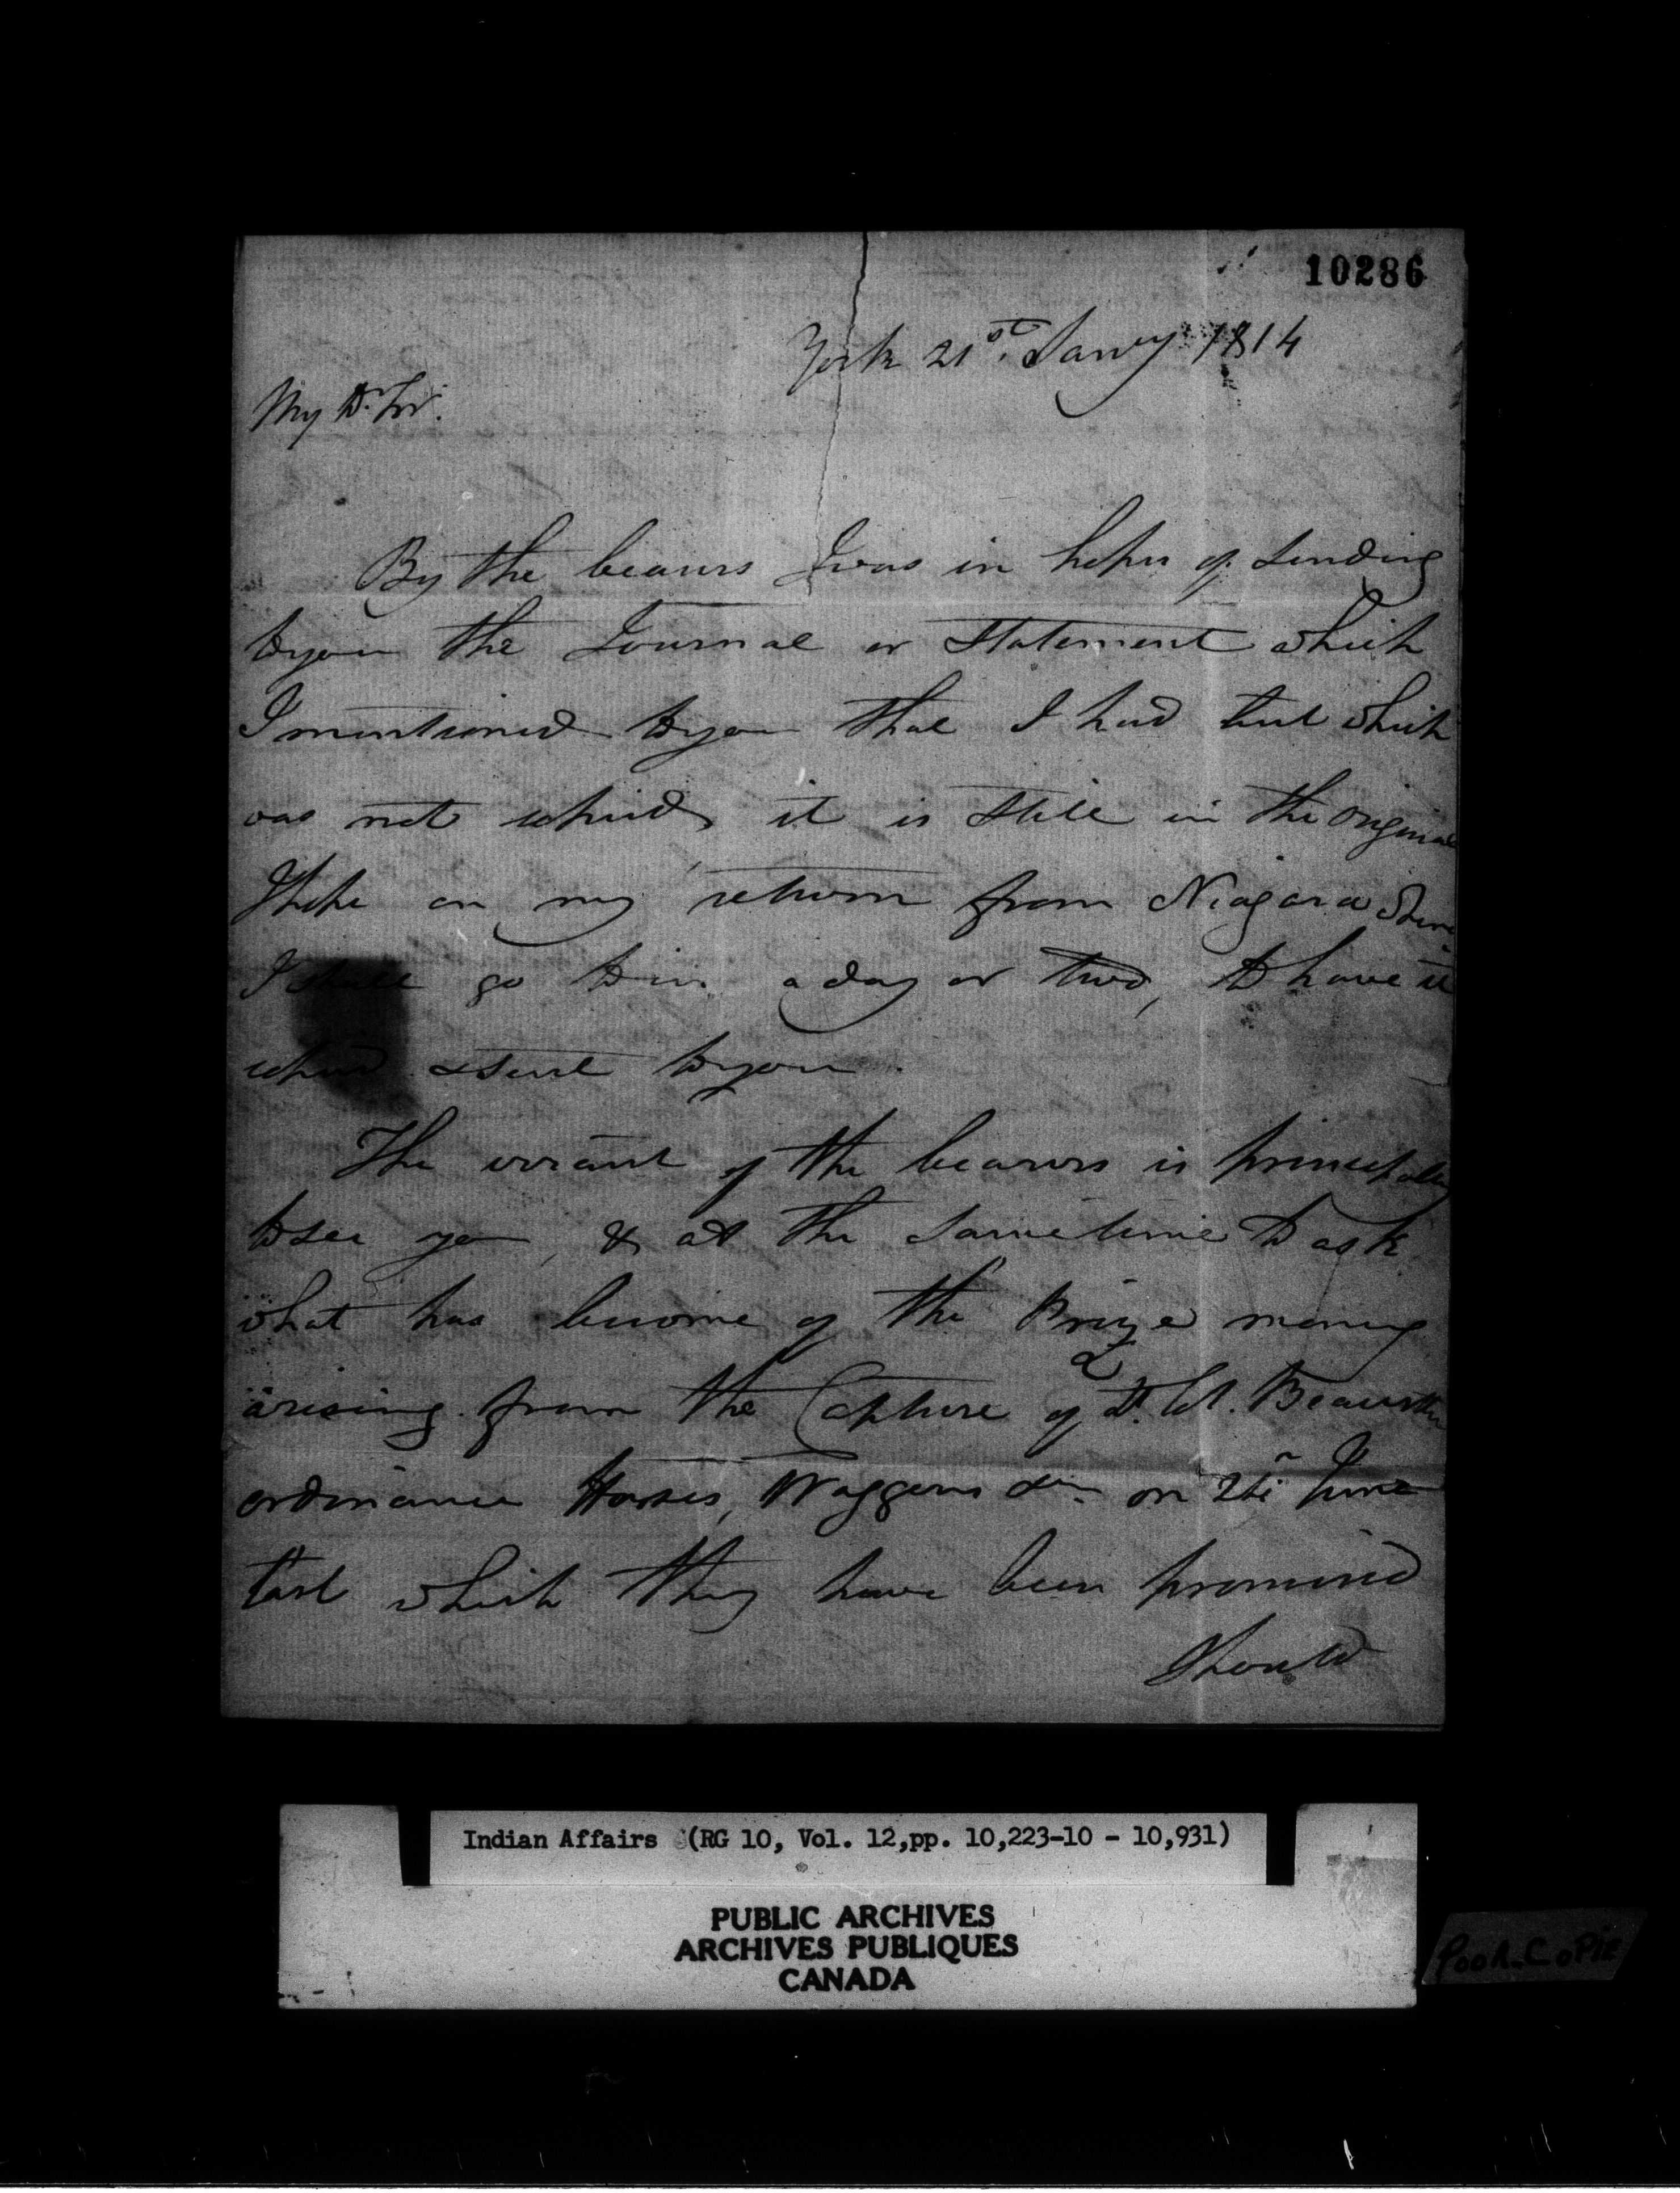 10286
York 21st. Jany 1814
My Dr. Sir.
By the bearers I was in hopes of sending
to you the Journal or Statement which
I mentioned to you that I had but which
was not copied, it is still in the original
I hope on my return from Niagara where
I shall go to in a day or two, to have it
copied & sent to you.
The errant of the bearers is principally
to see you, & at the same time to ask
what has become of the Prize money
arising from the Capture of Lt. Col. Boerstler
ordinance Horses, Waggons &c. on June
last which they have been promised
Should
Indian Affairs (RG 10, Vol. 12,pp. 10,223-10 - 10,931)
PUBLIC ARCHIVES
ARCHIVES PUBLIQUES
CANADA
POOR COPIE